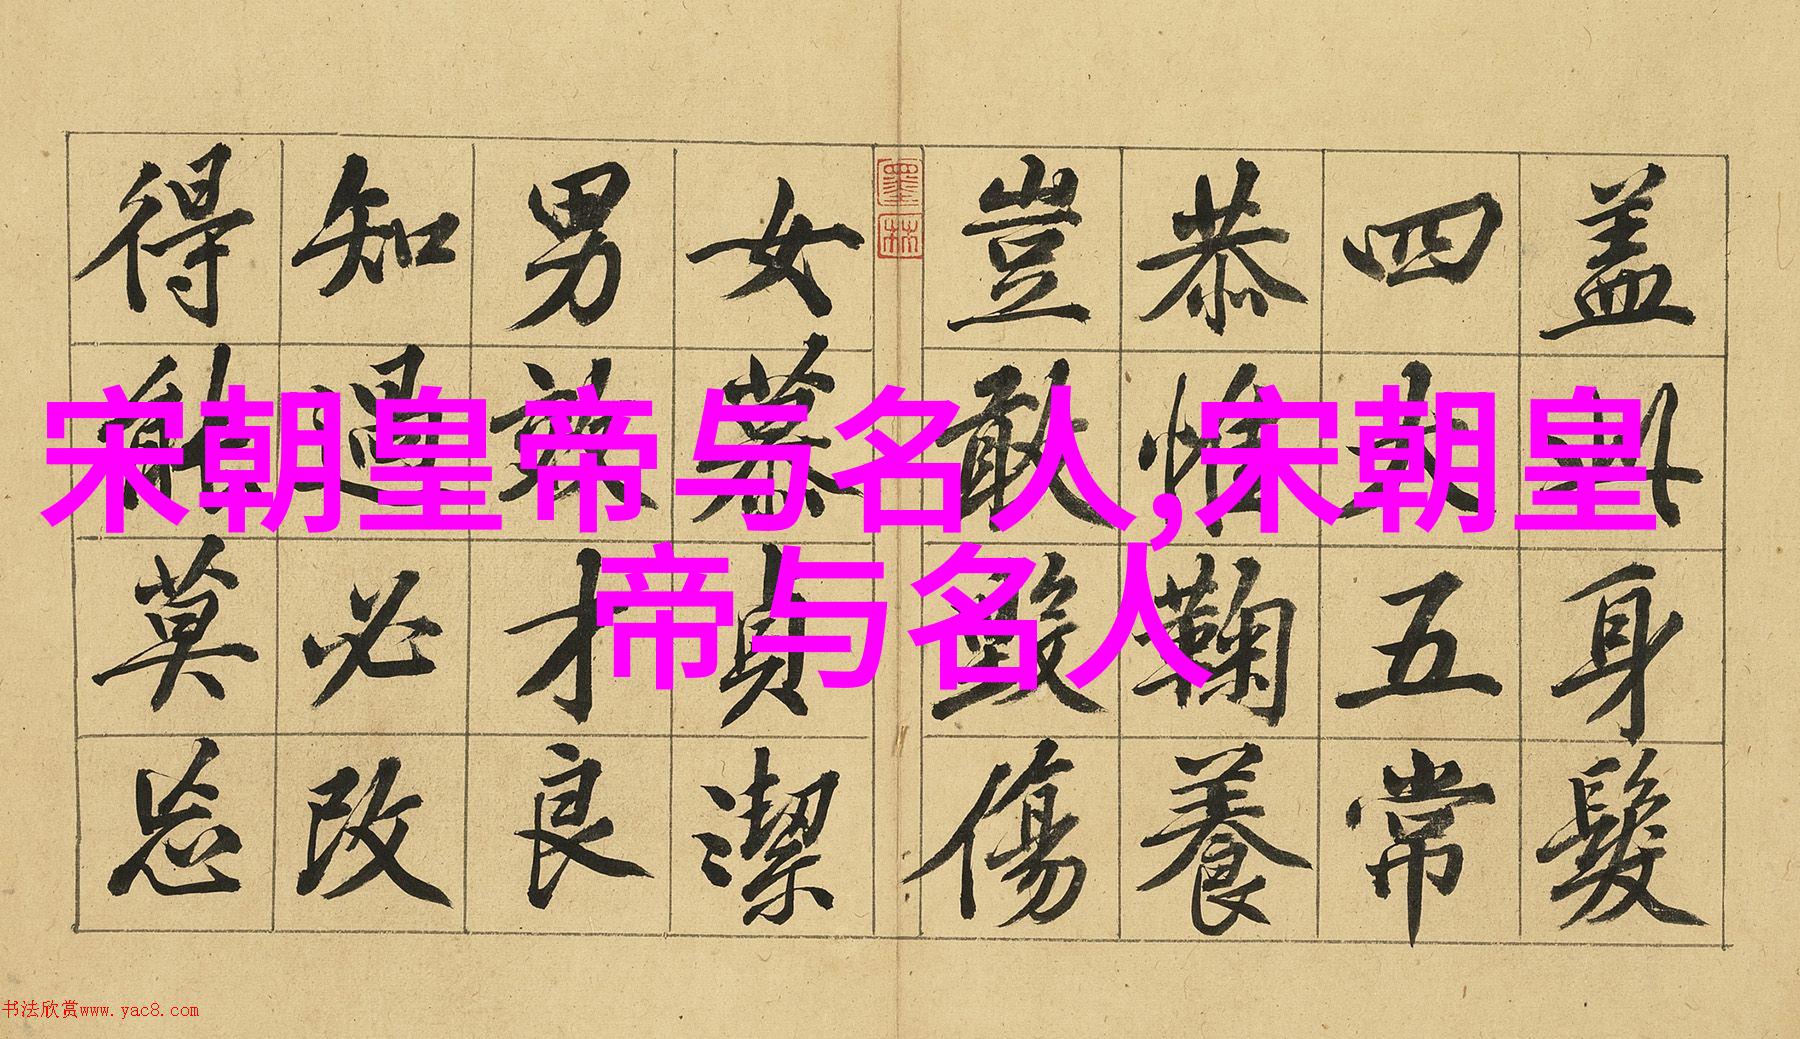 盖此身髮
四大五常
恭惟鞠養
豈敢毀傷
墨林
女慕貞潔
男效才良
知過必改
得能莫忘
宋朝皇帝与名人,宋朝皇
帝与名人
书法欣赏www.yac8.com